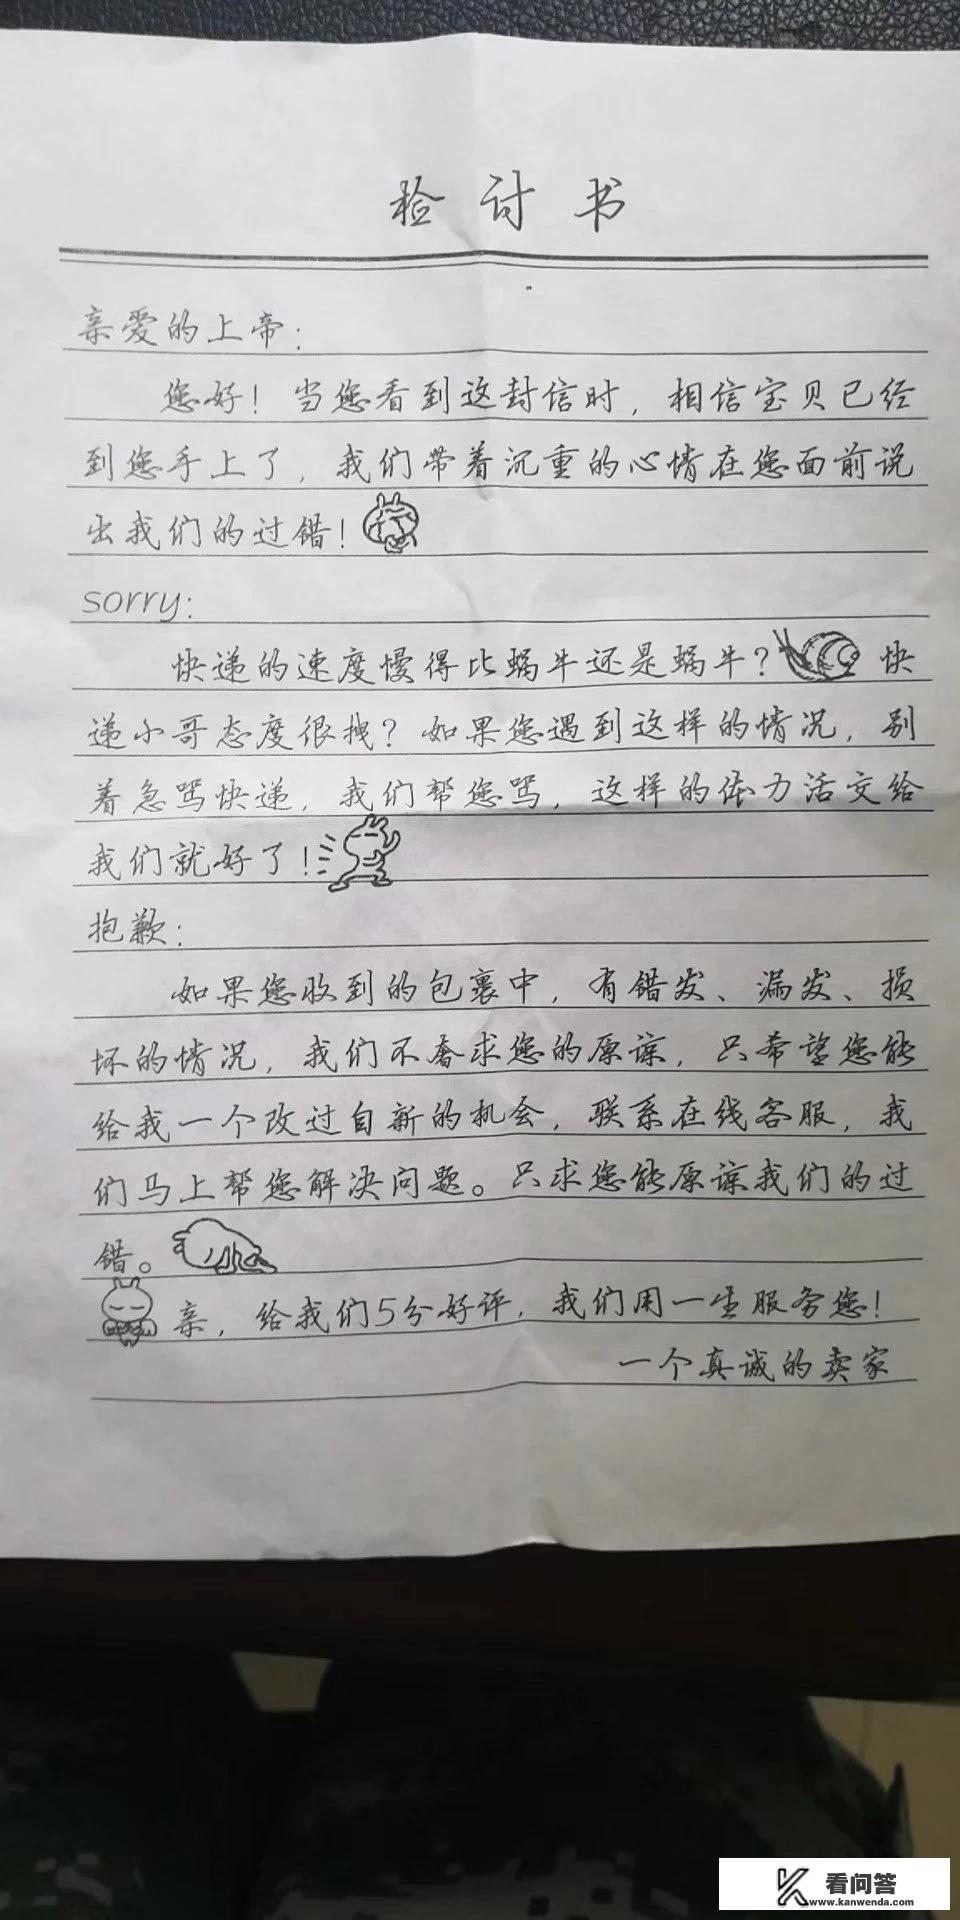 检讨书
亲爱的上帝：
您好！当您看到这封信时，相信宝贝已经
到您手上了，我们带着沉重的心情在您面前说
出我们的过错！
sorry：
快递的速度慢得比蜗牛还是蜗牛？快
递小哥态度很拽？如果您遇到这样的情况，别
着急骂快递，我们帮您骂，这样的体力活交给
我们就好了！
抱歉：
如果您收到的包裹中，有错发、漏发、损
坏的情况，我们不奢求您的原谅，只希望您能
给我一个改过自新的机会，联系在线客服，我
们马上帮您解决问题。只求您能原谅我们的过
错。
亲，给我们5分好评，我们用一生服务您！
一个真诚的卖家
看问答
www.kanwenda.com